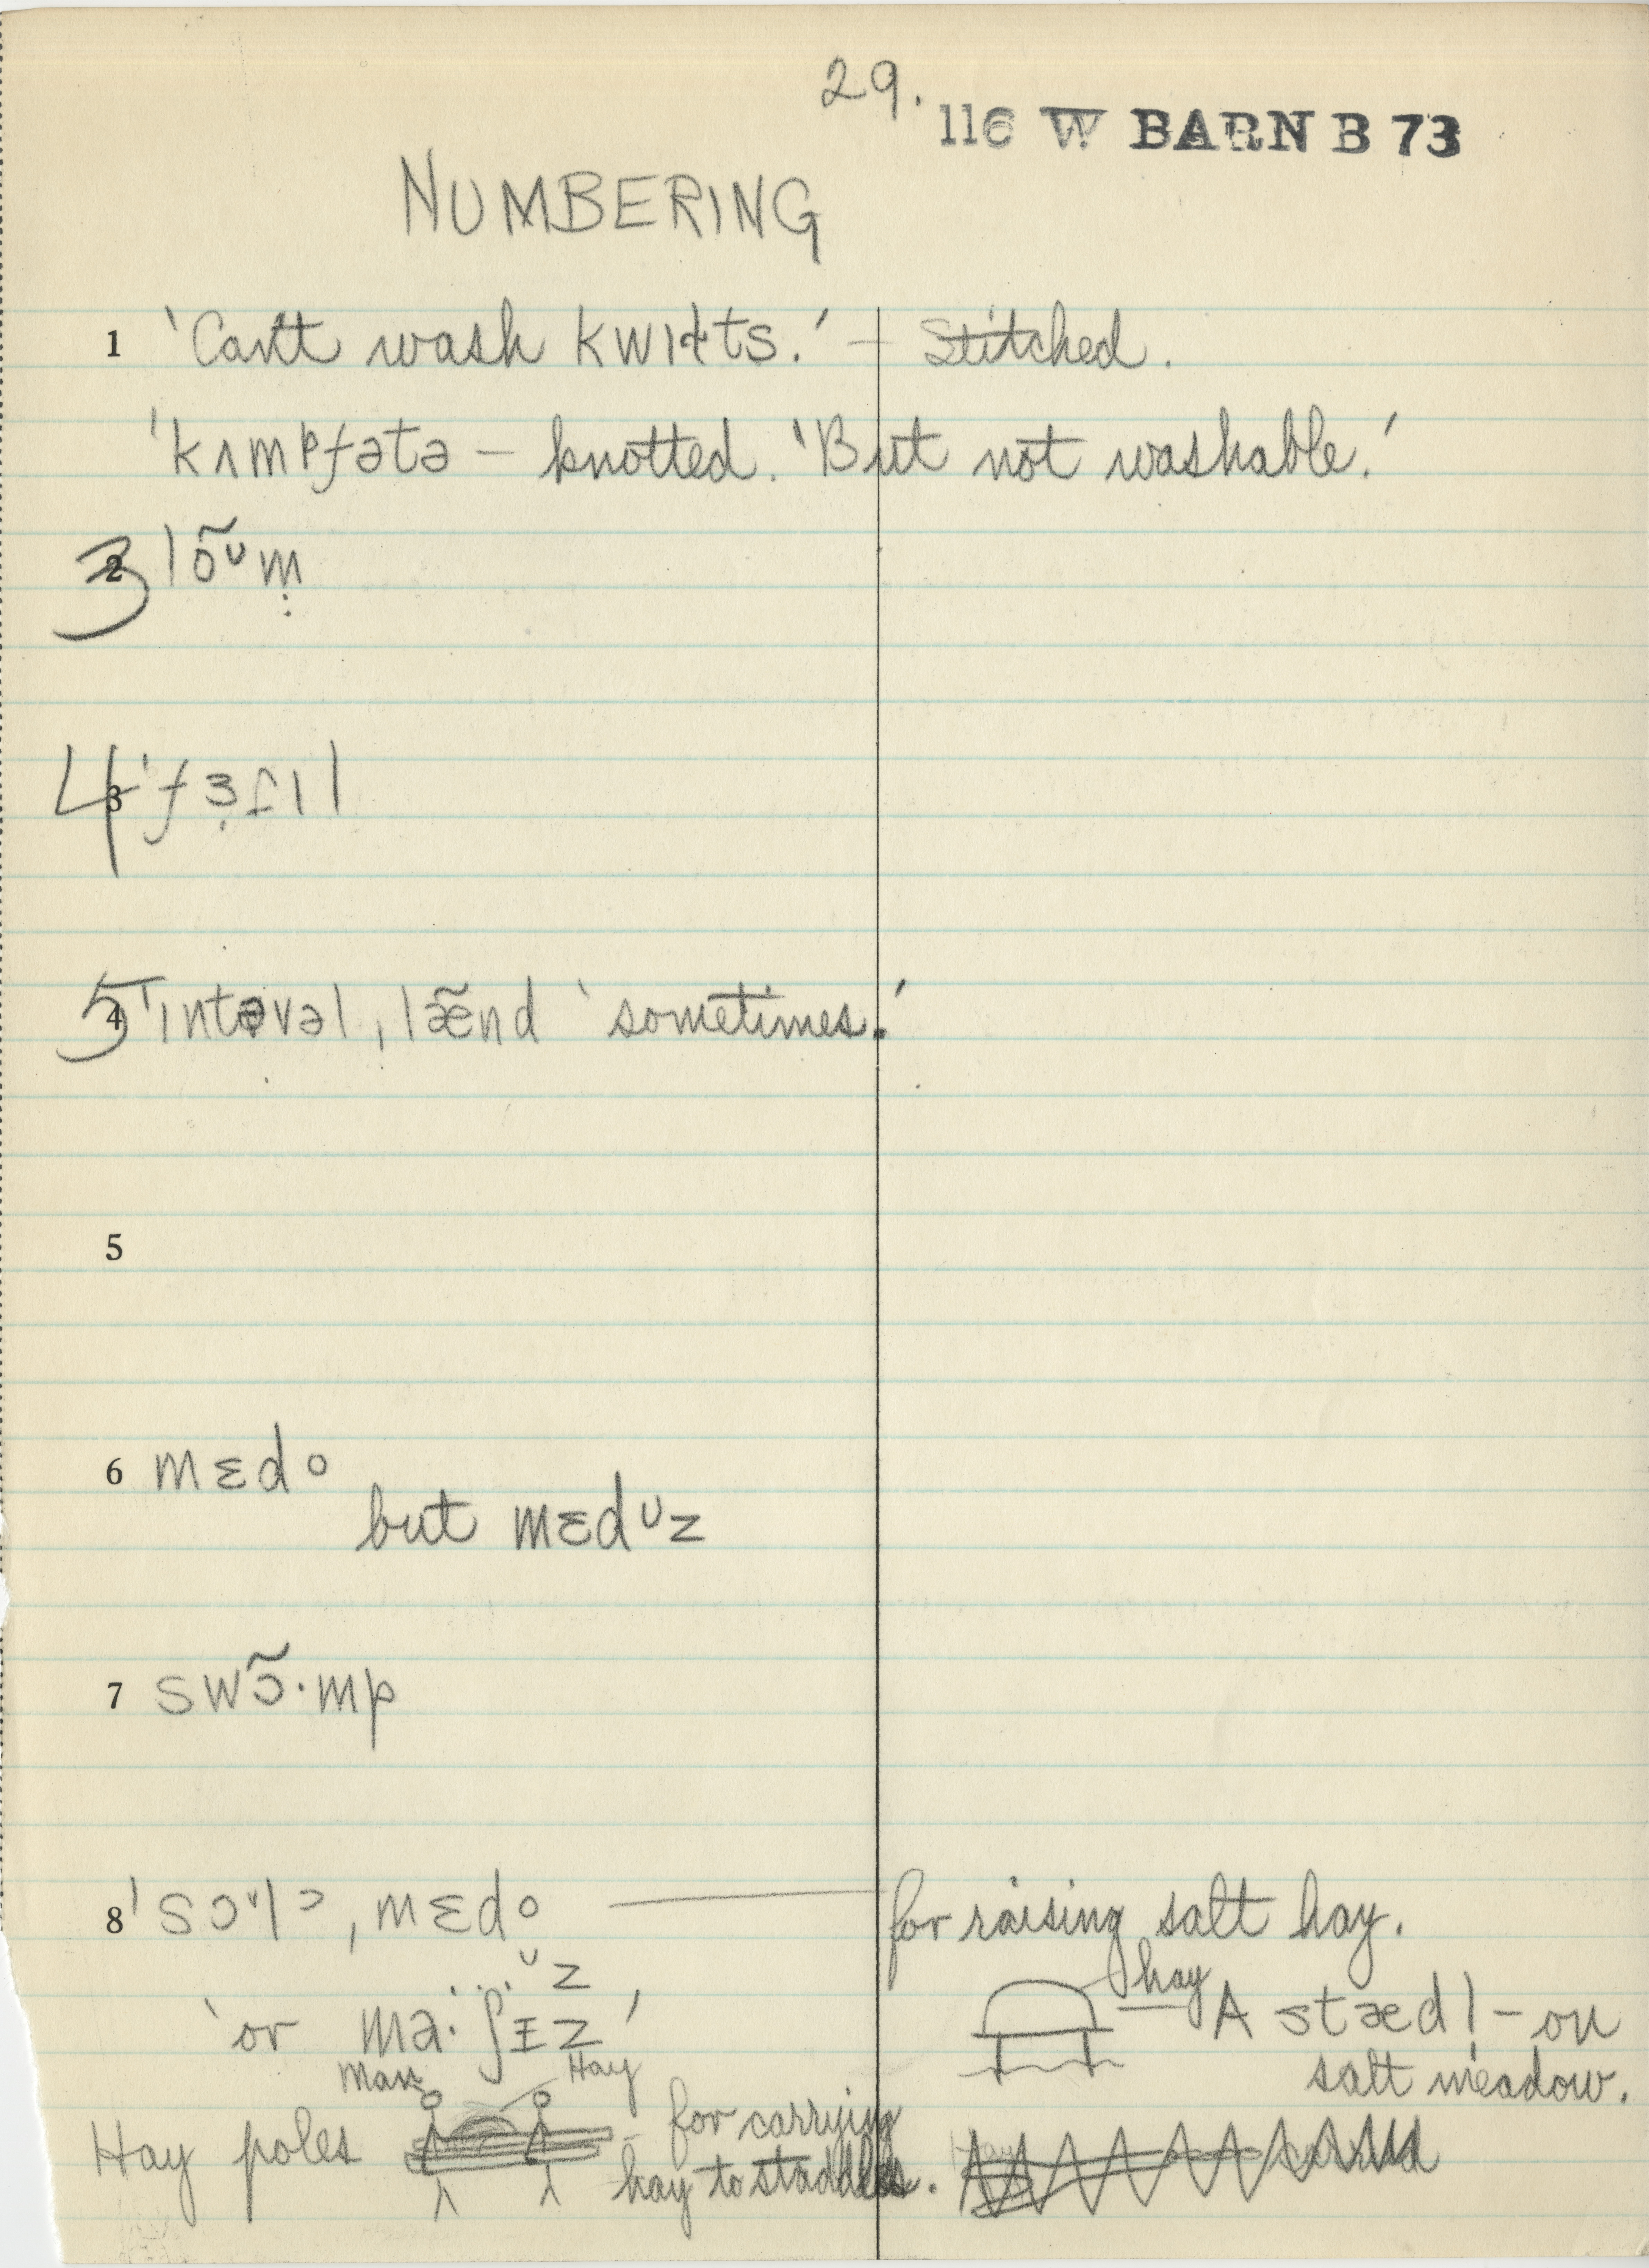 29.
116 W BARN B 73
NUMBERING
1 'Can't wash kwɪɫts.' – Stitched.
'kʌmᵖfətə – knotted. 'But not washable.'
2 3 lõᴜm̩
3 4 'fɜ
4 5 'ɪntəvəl ˌlæ̃nd 'sometimes.'
5
6 mɛdo
but mɛdᴜz
7 swɔ̃·mp
8 ˌmɛdo — for raising salt hay.
ᴜz
hay
'or ma·ʃɪz'
A stædl̩ – on
salt meadow.
Man
Hay
Hay poles – for carrying
hay to staddles.